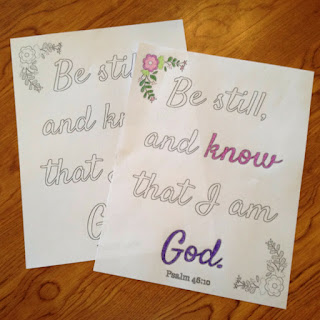 Be still
and kn
that
G
Be still,
and know
that I am
God.
Psalm 46:10